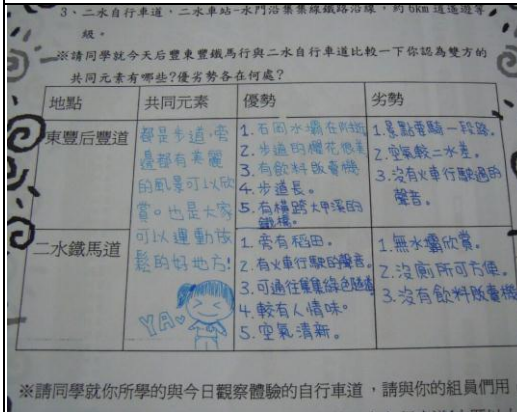 3、二水自行車道、二水車站-水門沿集集線鐵路沿線，約6km逍遙遊等
級。
※請同學就今天后豐東豐鐵馬行與二水自行車道比較一下你認為雙方的
共同元素有哪些?優劣勢各在何處?
地點
共同元素
優勢
劣勢
東豐后豐道
都是步道,旁
邊都有美麗
的風景可以欣
賞。也是大家
可以運動放
鬆的好地方!
YA
1.石岡水壩在附近
2.步道的櫻花很美
3.有飲料販賣機
4.步道長。
5.有橫跨大甲溪的
鐵橋。
1.景點要騎一段路。
2.空氣較二水差。
3.沒有火車行駛過的
聲音。
二水鐵馬道
1.旁有稻田。
2.有火車行駛的聲音。
3.可通往集集綠色隧道
4.較有人情味。
5.空氣清新。
1.無水壩欣賞。
2.沒廁所可方便。
3.沒有飲料販賣機
※請同學就你所學的與今日觀察體驗的自行車道，請與你的組員們用